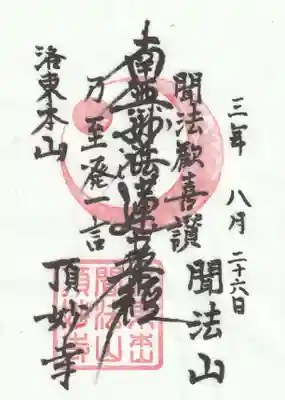 三年 八月 二十六日
聞法山
聞法歡喜讃
南無妙法蓮華経
乃至発一言
洛東本山
頂妙寺
聞法山
頂妙寺